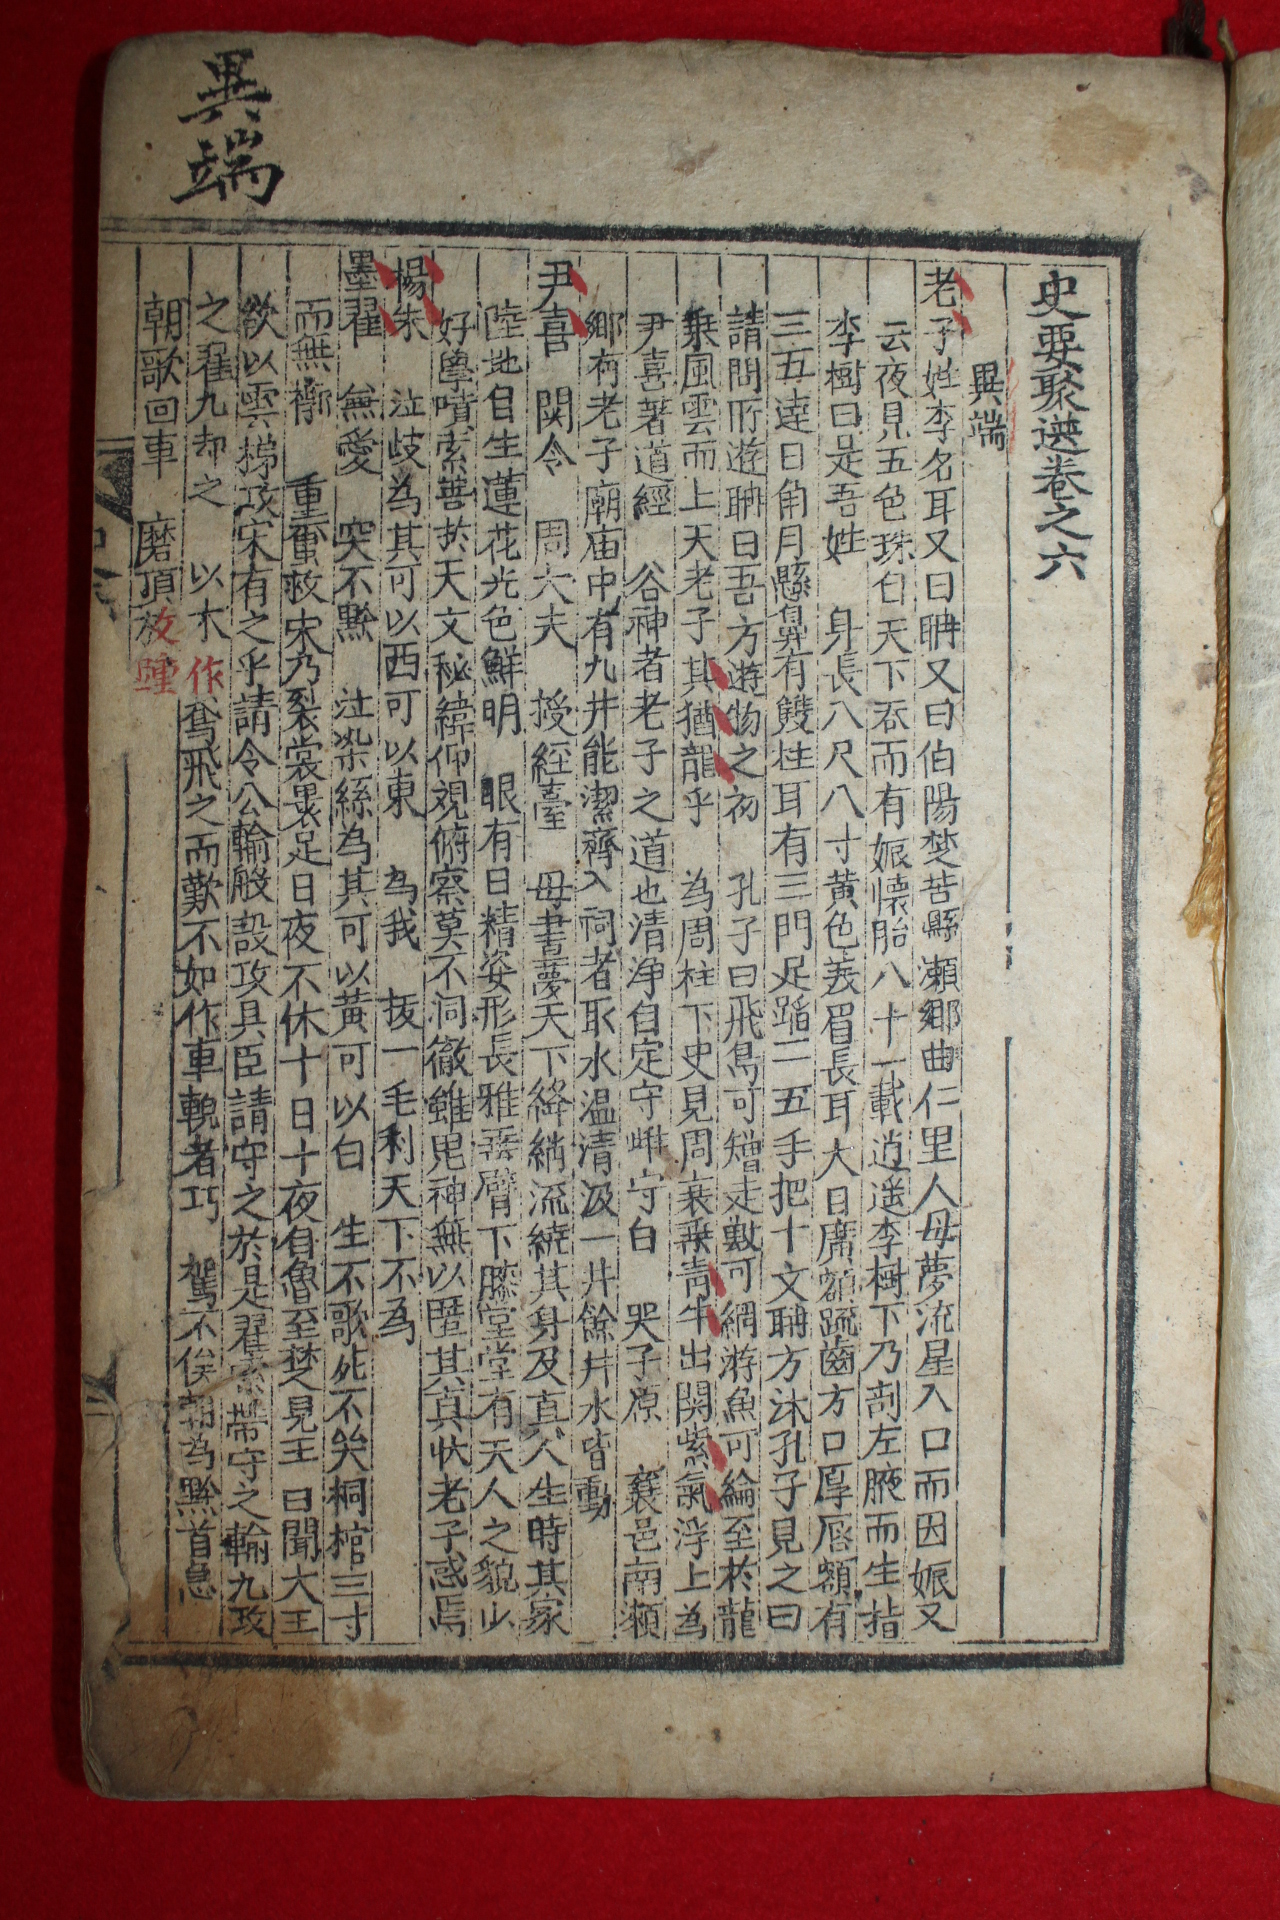 異端
史要聚選卷之六
異端
老子姓李名耳又曰聃又曰伯陽楚苦縣瀬鄉曲仁里人母夢流星入口而因娠又
云夜見五色珠自天下吞而有娠懷胎八十一載逍遥李樹下乃剖左腋而生指
李樹曰是吾姓 身長八尺八寸黃色美眉長耳大目廣額踈齒方口厚唇額有
三五達日角月懸鼻有雙柱耳有三門足蹈二五手把十文聃方沐孔子見之曰
請問所遊聃曰吾方遊物之初 孔子曰飛鳥可矰走獸可網游魚可綸至於龍
乗風雲而上天老子其猶龍乎 為周柱下史見周衰乗靑牛出関紫氣浮上為
尹喜著道經 谷神者老子之道也清净自定守雌守白 哭子原 襄邑南瀬
鄉有老子廟庙中有九井能潔齊入祠者取水温清汲一井餘井水皆動
尹喜 関令 周大夫 授經臺 母晝夢天下絳綃流繞其身及真人生時其家
陸地自生蓮花光色鮮明 眼有日精姿形長雅垂臂下膝堂堂有天人之貌少
好學墳索善於天文秘緯仰視俯察莫不洞徹雖鬼神無以匿其真状老子惑焉
楊朱 泣歧為其可以西可以東 為我 拔一毛利天下不為
墨翟 無愛 突不黔 泣染絲為其可以黃可以白 生不歌死不哭桐棺三寸
而無槨 重繭救宋乃裂裳裹足日夜不休十日十夜自魯至楚見王曰聞大王
欲以雲梯攻宋有之乎請令公輸般設攻具臣請守之於是翟縈帶守之輸九攻
之翟九却之 以木作鳶飛之而歎不如作車輗者巧 駕不俟朝為黔首急
朝歌回車 磨頂放踵